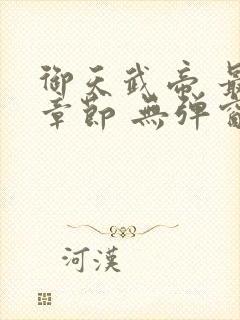 御天武帝 最
章節 無彈窗
河漢